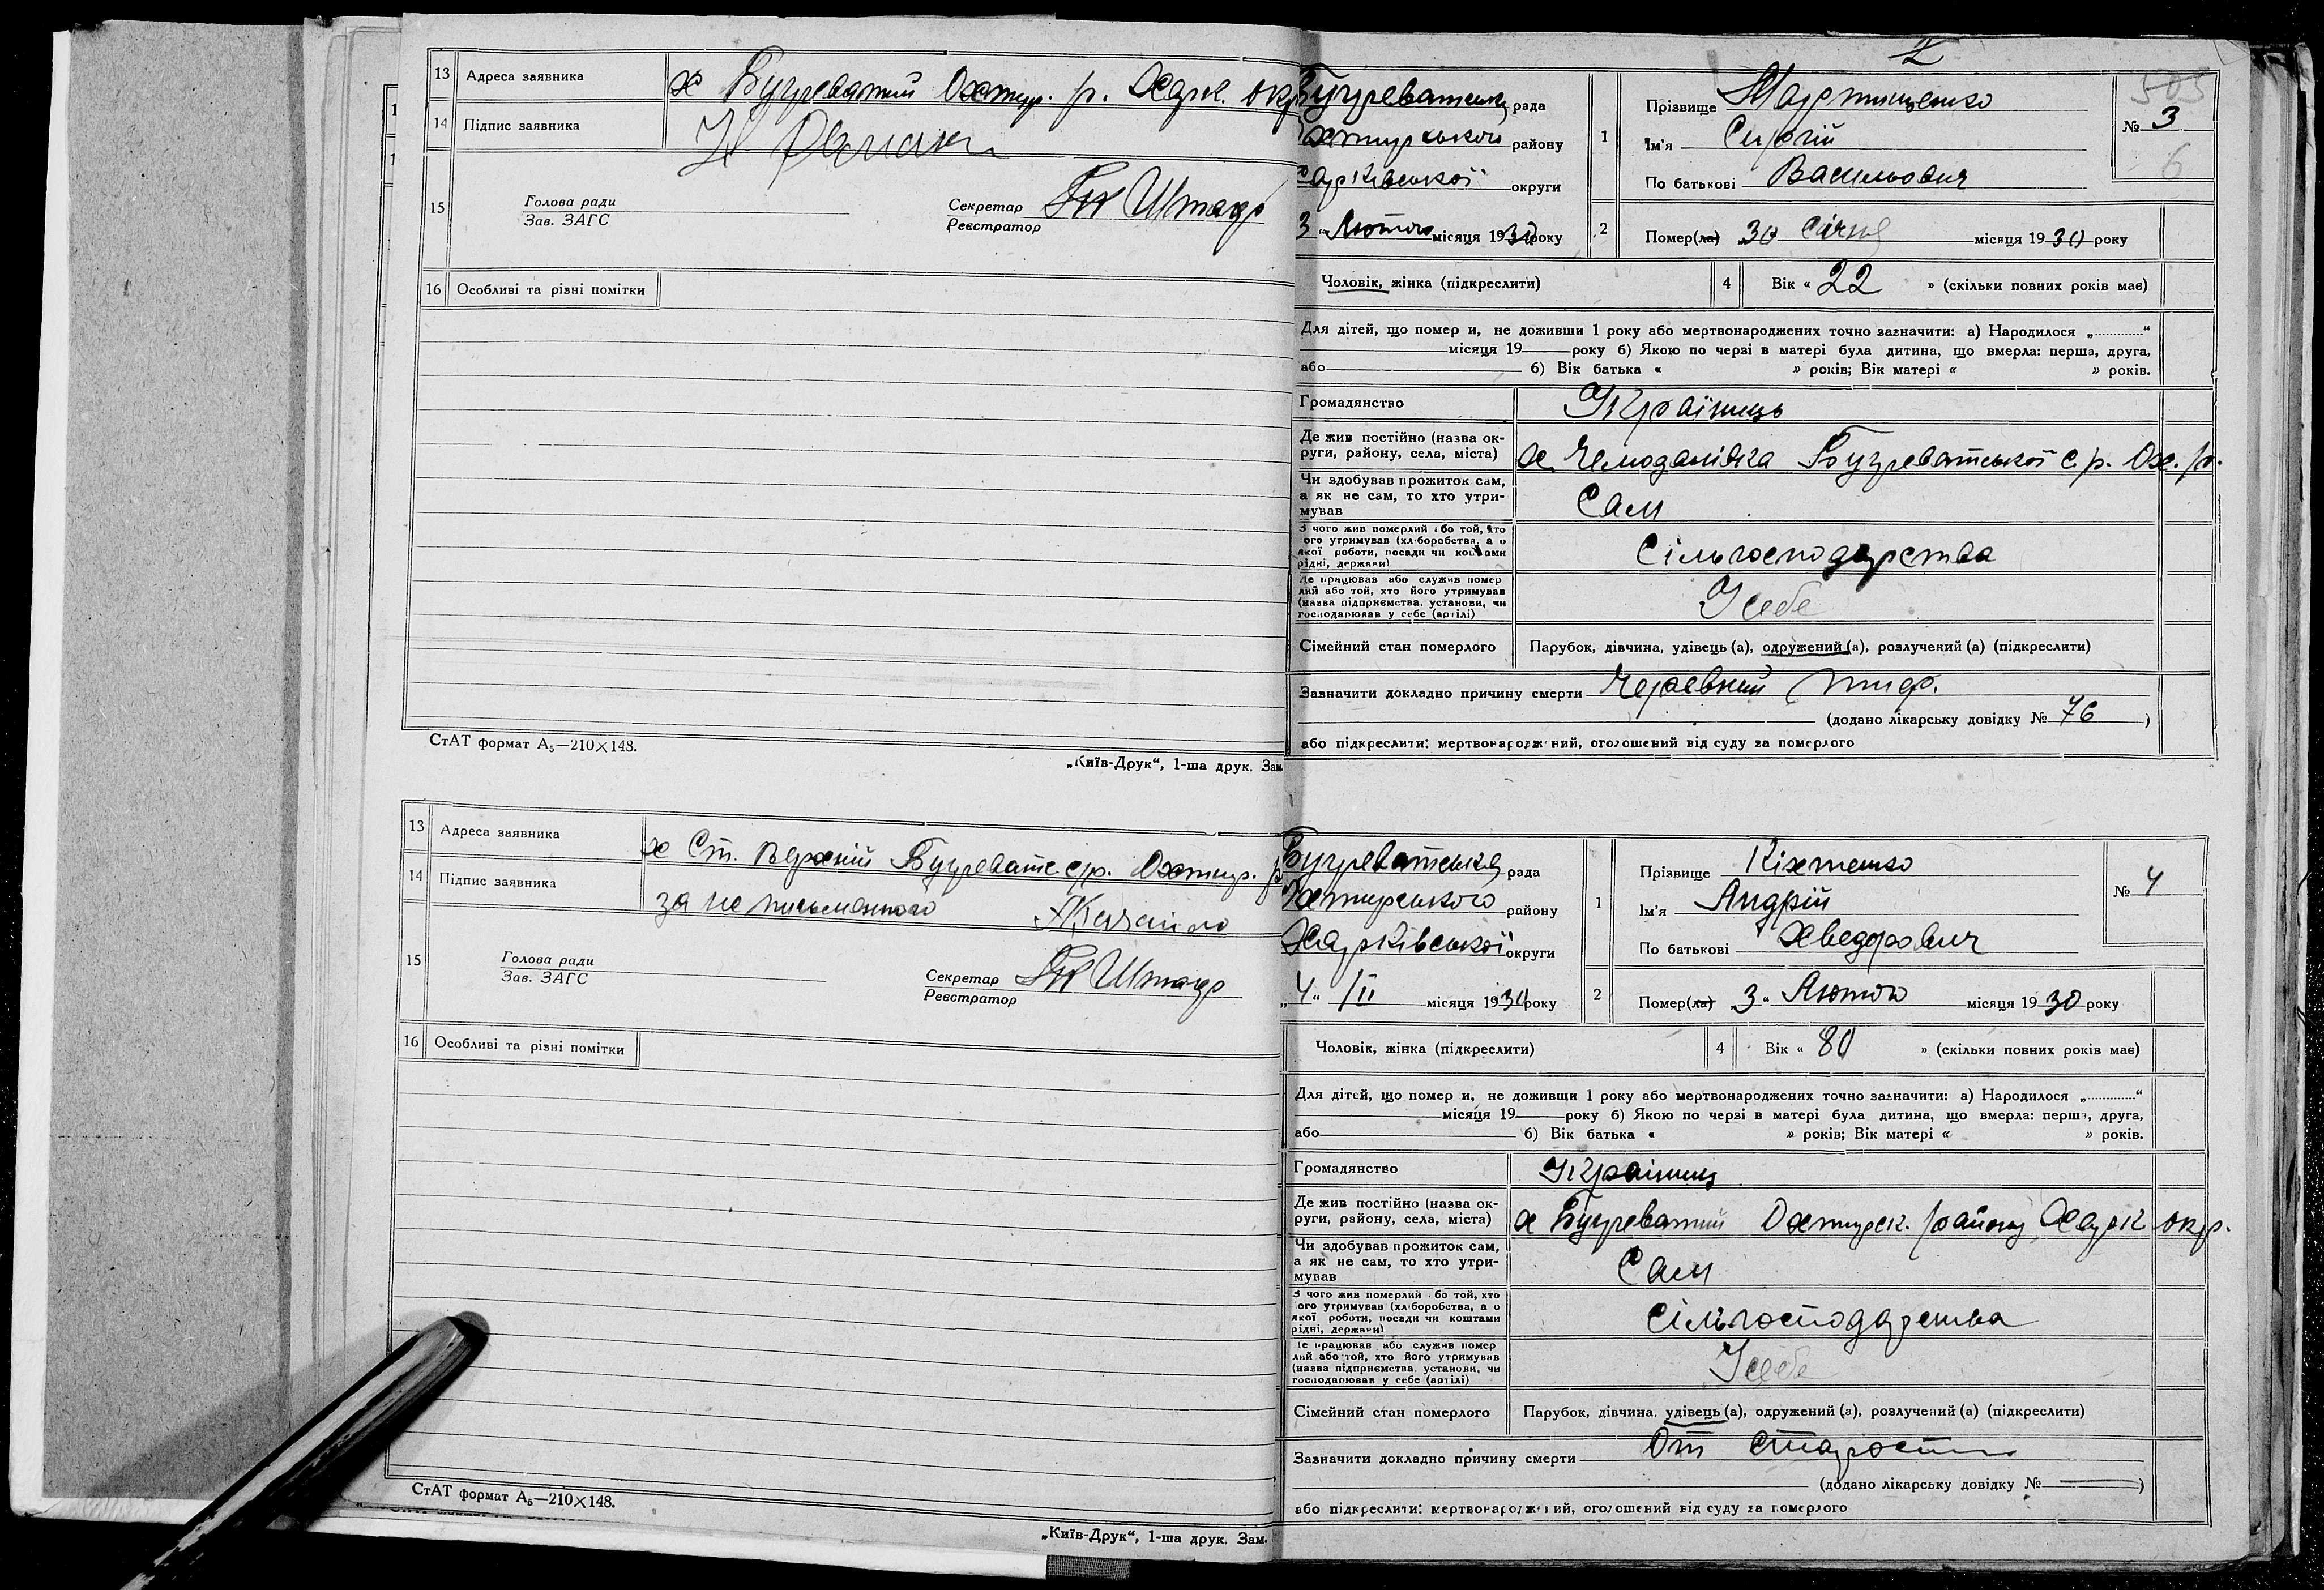 13 Адреса заявника х Бугреватий Охтир. р. Харк. окр
14 Підпис заявника
15 Голова ради
Зав. ЗАГС
Секретар
Реєстратор
16 Особливі та різні помітки
СтАТ формат А₅—210×148.
„Київ-Друк“, 1-ша друк. Зам.
13 Адреса заявника х Ст. Верхній Бугреватс. с/р. Охтир. р
14 Підпис заявника за не письменного
15 Голова ради
Зав. ЗАГС
Секретар
Реєстратор
16 Особливі та різні помітки
СтАТ формат А₅—210×148.
„Київ-Друк“, 1-ша друк. Зам.
II
505
Бугреватська рада
Охтирського району
Харківської округи
3 „ Лютого місяця 1930 року
1 Прізвище Мартищенко
Ім'я Сергій
По батькові Васильович
№ 3
6
2 Помер(ла) 30 Січня місяця 1930 року
Чоловік, жінка (підкреслити) 4 Вік « 22 » (скільки повних років має)
Для дітей, що помер и, не доживши 1 року або мертвонароджених точно зазначити: а) Народилося „ “
місяця 19 року б) Якою по черзі в матері була дитина, що вмерла: перша, друга,
або б) Вік батька « » років; Вік матері « » років.
Громадянство Українець
Де жив постійно (назва ок-
руги, району, села, міста) х. Чемоданівка Бугреватської с. р. Ох. р.
Чи здобував прожиток сам,
а як не сам, то хто утри-
мував Сам
З чого жив померлий або той, хто
ого утримував (хліборобства, а о
якої роботи, посади чи коштами
рідні, держави) Сільгосподарства
Де працював або служив помер
лий або той, хто його утримував
(назва підприємства, установи, чи
господарював у себе (артілі) У себе
Сімейний стан померлого Парубок, дівчина, удівець (а), одружений (а), розлучений (а) (підкреслити)
Зазначити докладно причину смерти Черевний тиф.
(додано лікарську довідку № 76 )
або підкреслити: мертвонароджений, оголошений від суду за померлого
Бугреватська рада
Охтирського району
Харківської округи
„4“ /II місяця 1930 року
1 Прізвище Кіхтенко
Ім'я Андрій
По батькові Хведорович
№ 4
2 Помер(ла) 3 „ Лютого місяця 1930 року
Чоловік, жінка (підкреслити) 4 Вік « 80 » (скільки повних років має)
Для дітей, що помер и, не доживши 1 року або мертвонароджених точно зазначити: а) Народилося „ “
місяця 19 року б) Якою по черзі в матері була дитина, що вмерла: перша, друга,
або б) Вік батька « » років; Вік матері « » років.
Громадянство Українець
Де жив постійно (назва ок-
руги, району, села, міста) х Бугреватий Охтирск. району Харк окр.
Чи здобував прожиток сам,
а як не сам, то хто утри-
мував Сам
З чого жив померлий або той, хто
ого утримував (хліборобства, а о
якої роботи, посади чи коштами
рідні, держави) Сільгосподарства
Де працював або служив помер
лий або той, хто його утримував
(назва підприємства, установи, чи
господарював у себе (артілі) У себе
Сімейний стан померлого Парубок, дівчина, удівець (а), одружений (а), розлучений (а) (підкреслити)
Зазначити докладно причину смерти От старости
(додано лікарську довідку № — )
або підкреслити: мертвонароджений, оголошений від суду за померлого